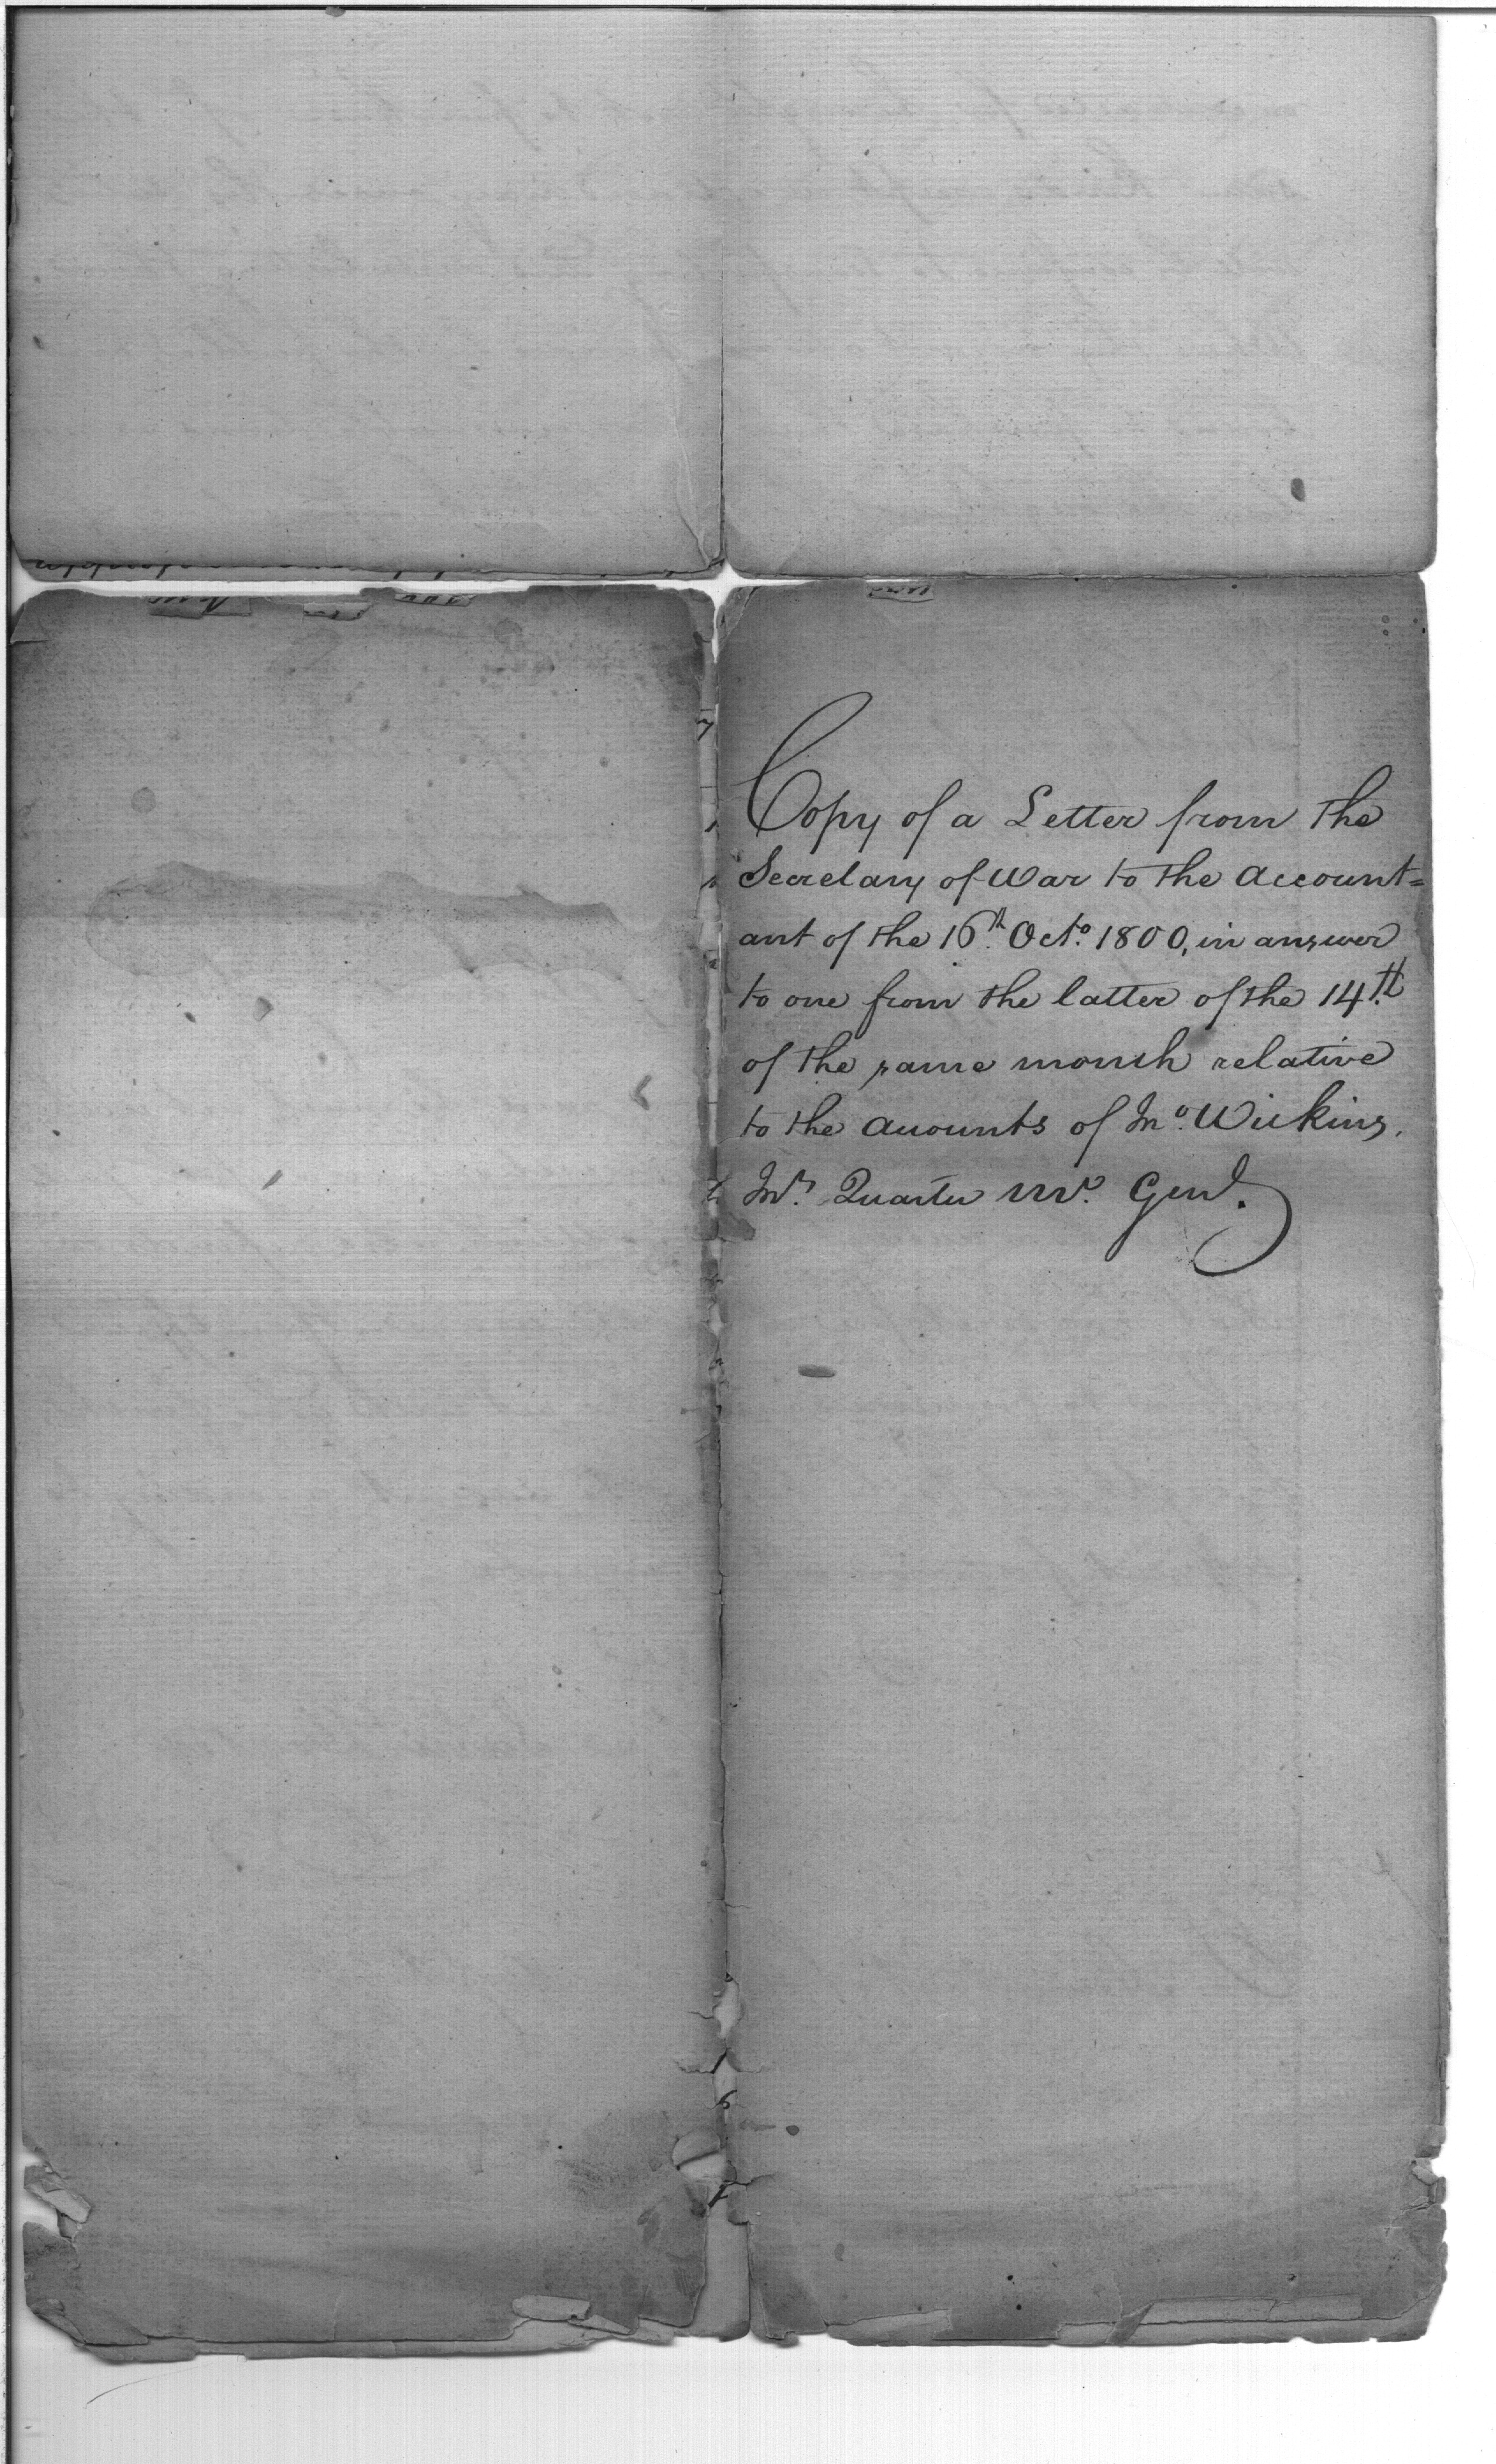 Copy of a Letter from the
Secretary of War to the Account=
ant of the 16th. Octo. 1800, in answer
to one from the latter of the 14th.
of the same month relative
to the accounts of Mr. Wilkins.
Quarter Mr. Genl.